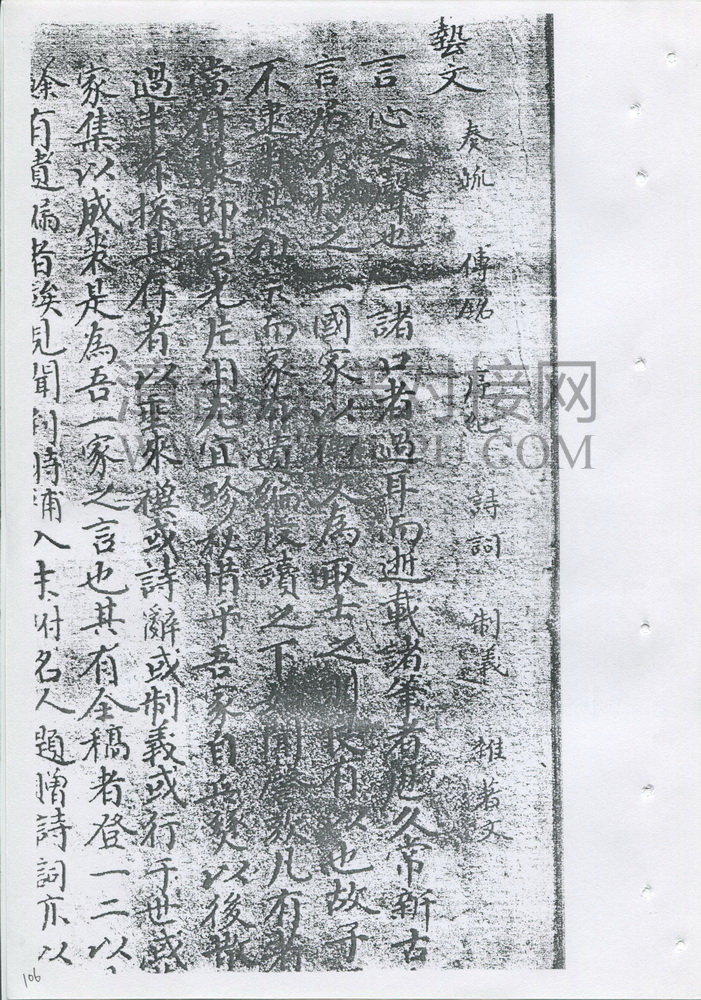 藝文 奏疏 傳銘 序記 詩詞 制義 雜著文
言心之聲也 諸口者過耳而逝載諸筆者歷久常新古
言居不朽之三國家以 文為取士之 良有以也故子
不逮 其祖宗而家有遺編披讀之下如聞聲欬凡有著
當 即吉光片羽尤宜珍秘惜乎吾家自兵燹以後散
過半 採其存者以垂來禩或詩辭或制義或行于世或
家集以成衆是為吾一家之言也其有全稿者登一二以
餘有遺漏者俟見聞 時補入末附名人題贈詩詞亦以
106